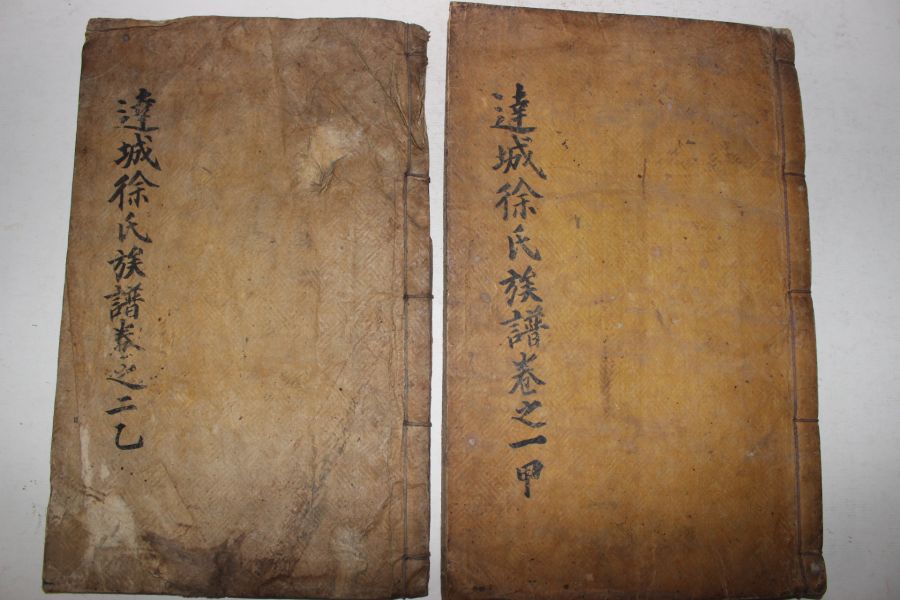 達城徐氏族譜卷之一甲
達城徐氏族譜卷之二乙